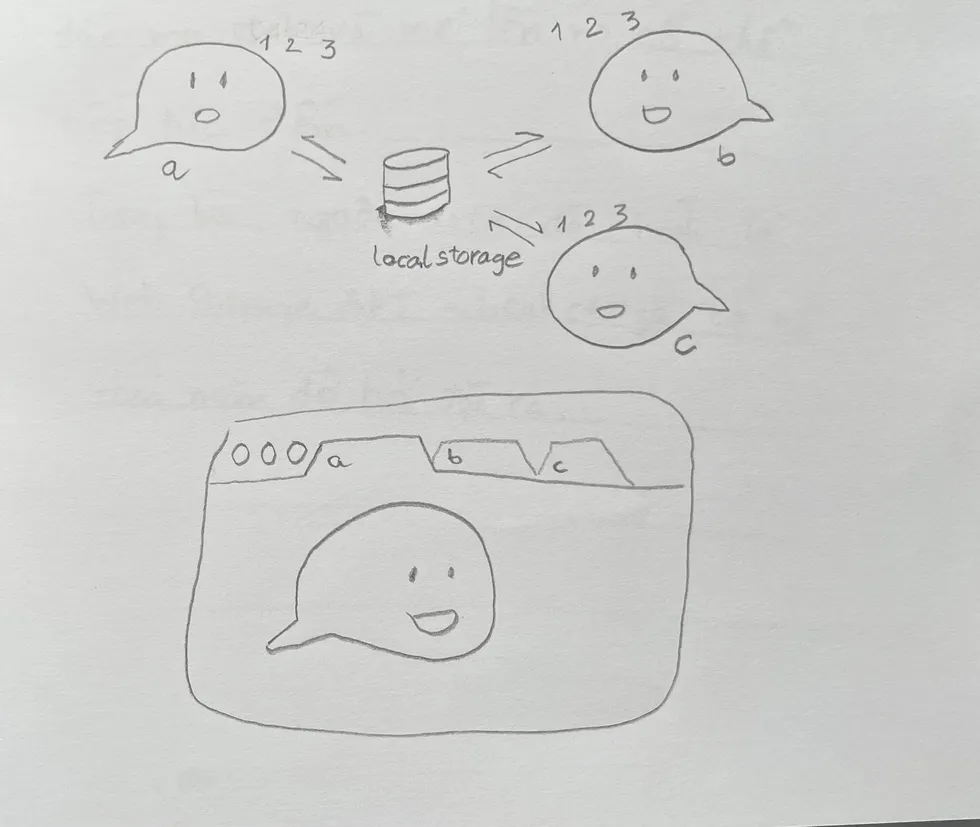 1 2 3
1 2 3
a
b
local storage
1 2 3
c
a
b
c